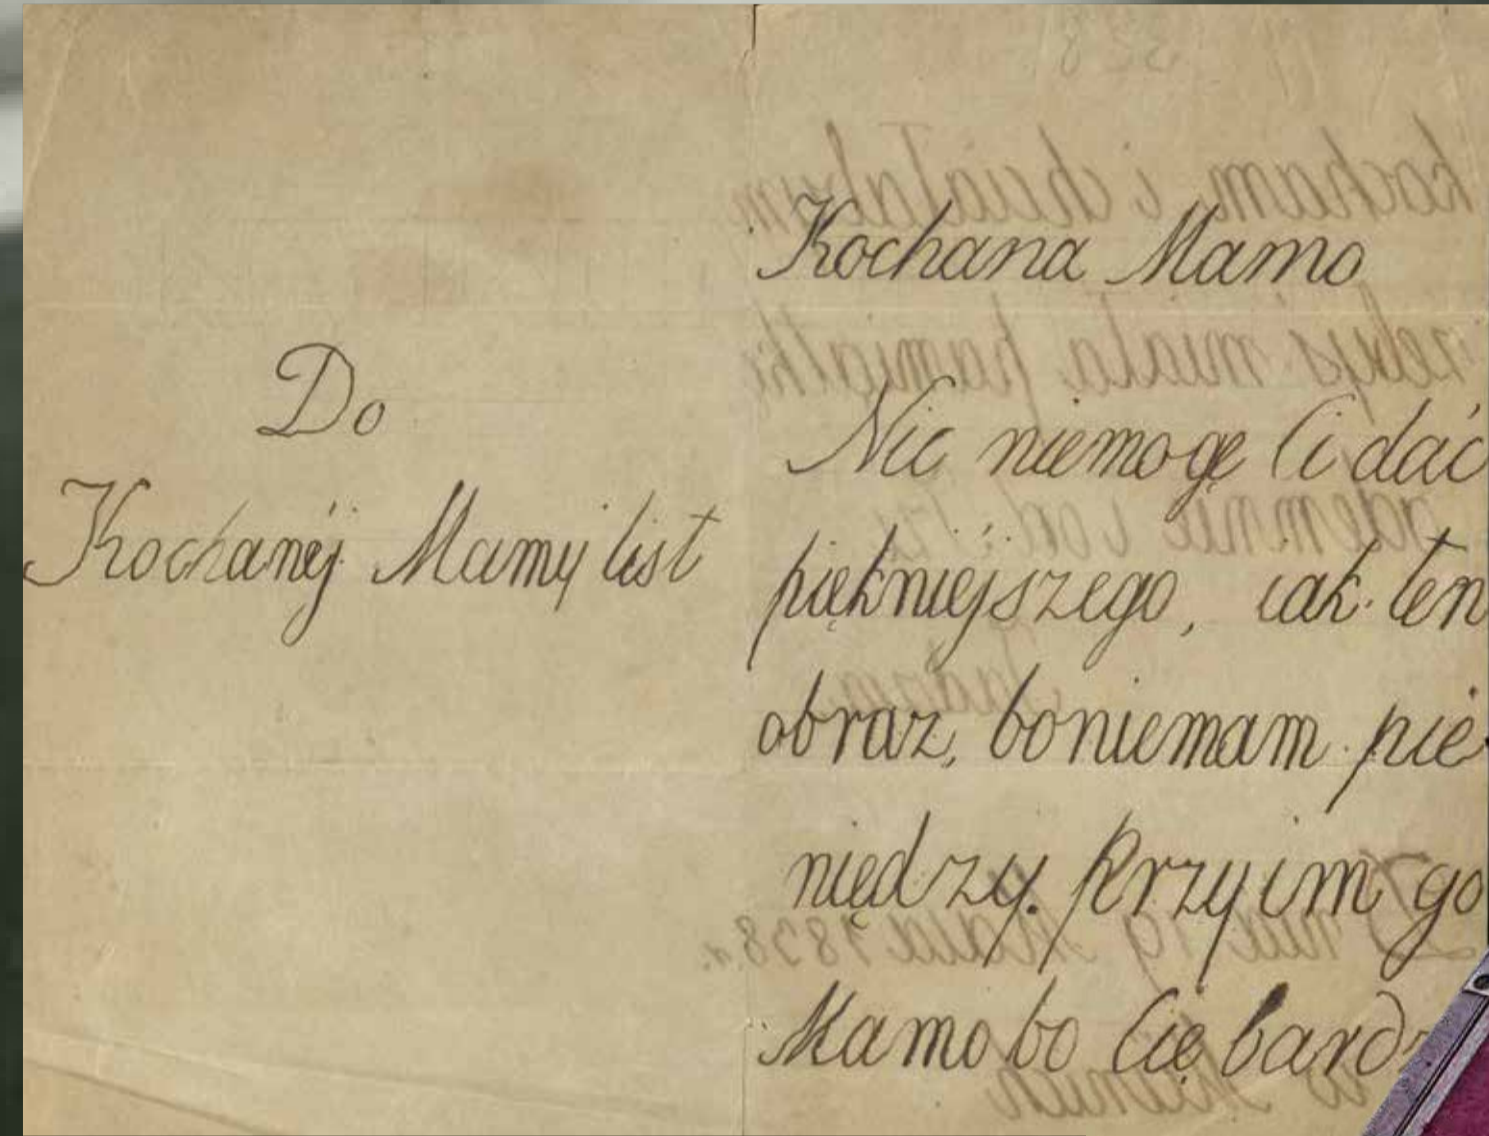 Do
Kochanéj Mamy list
Kochana Mamo
Nic niemogę Ci dać
piękniéjszego, iak ten
obraz, boniemam pie
niędzy. Przyim go
Mamo bo Cię bardz